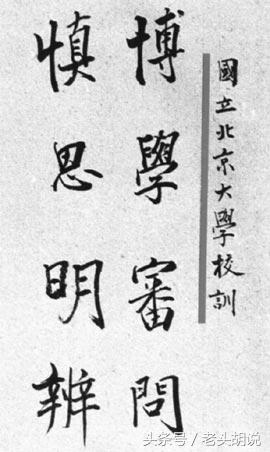 國立北京大學校訓
博學審問
慎思明辨
头条号／老头胡说